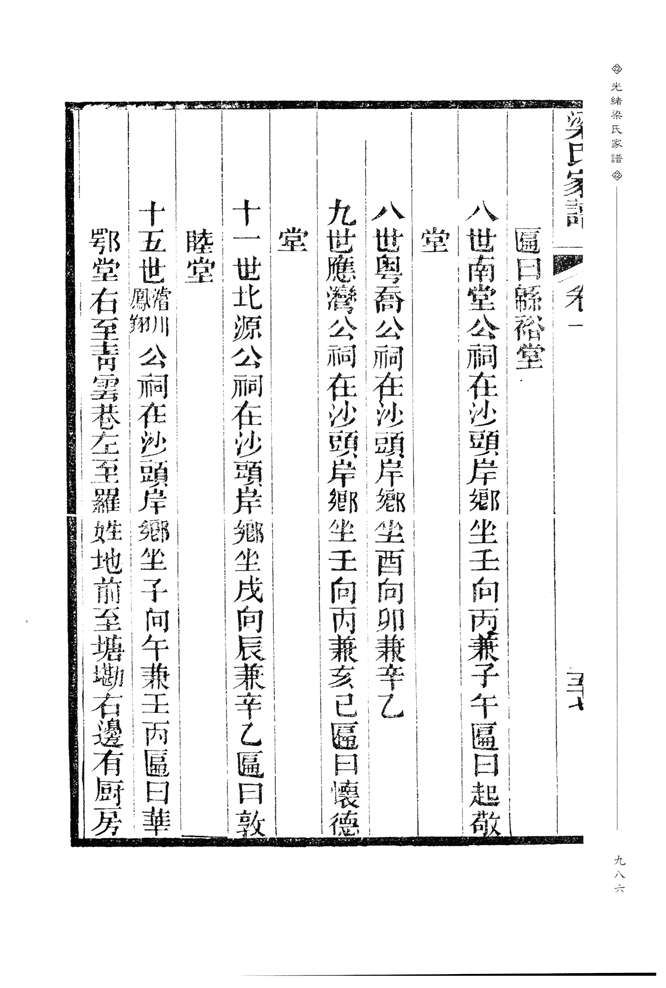 光緒梁氏家譜
梁氏家譜 卷一 五十七
匾曰緜裕堂
八世南堂公祠在沙頭岸鄉坐壬向丙兼子午匾曰起敬
堂
八世粵喬公祠在沙頭岸鄉坐酉向卯兼辛乙
九世應灣公祠在沙頭岸鄉坐壬向丙兼亥巳匾曰懷德
堂
十一世北源公祠在沙頭岸鄉坐戌向辰兼辛乙匾曰敦
睦堂
十五世濳川鳳翔公祠在沙頭岸鄉坐子向午兼壬丙匾曰華
鄂堂右至靑雲巷左至羅姓地前至塘墈右邊有厨房
九八六